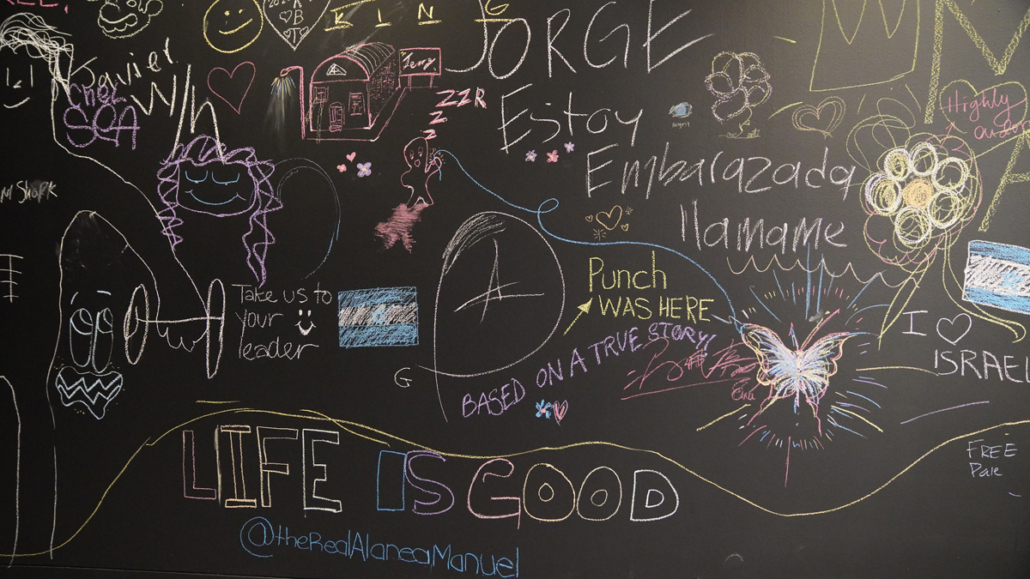 KING
JORGE
Xavier
SEA
ZZR
Z
Z
Estoy
Embarazada
llamame
Highly
Take us to
your
leader
A
G
Punch
WAS HERE
BASED ON A TRUE STORY!
I ♡
ISRAEL
FREE
LIFE IS GOOD
@theRealAlaneaManuel